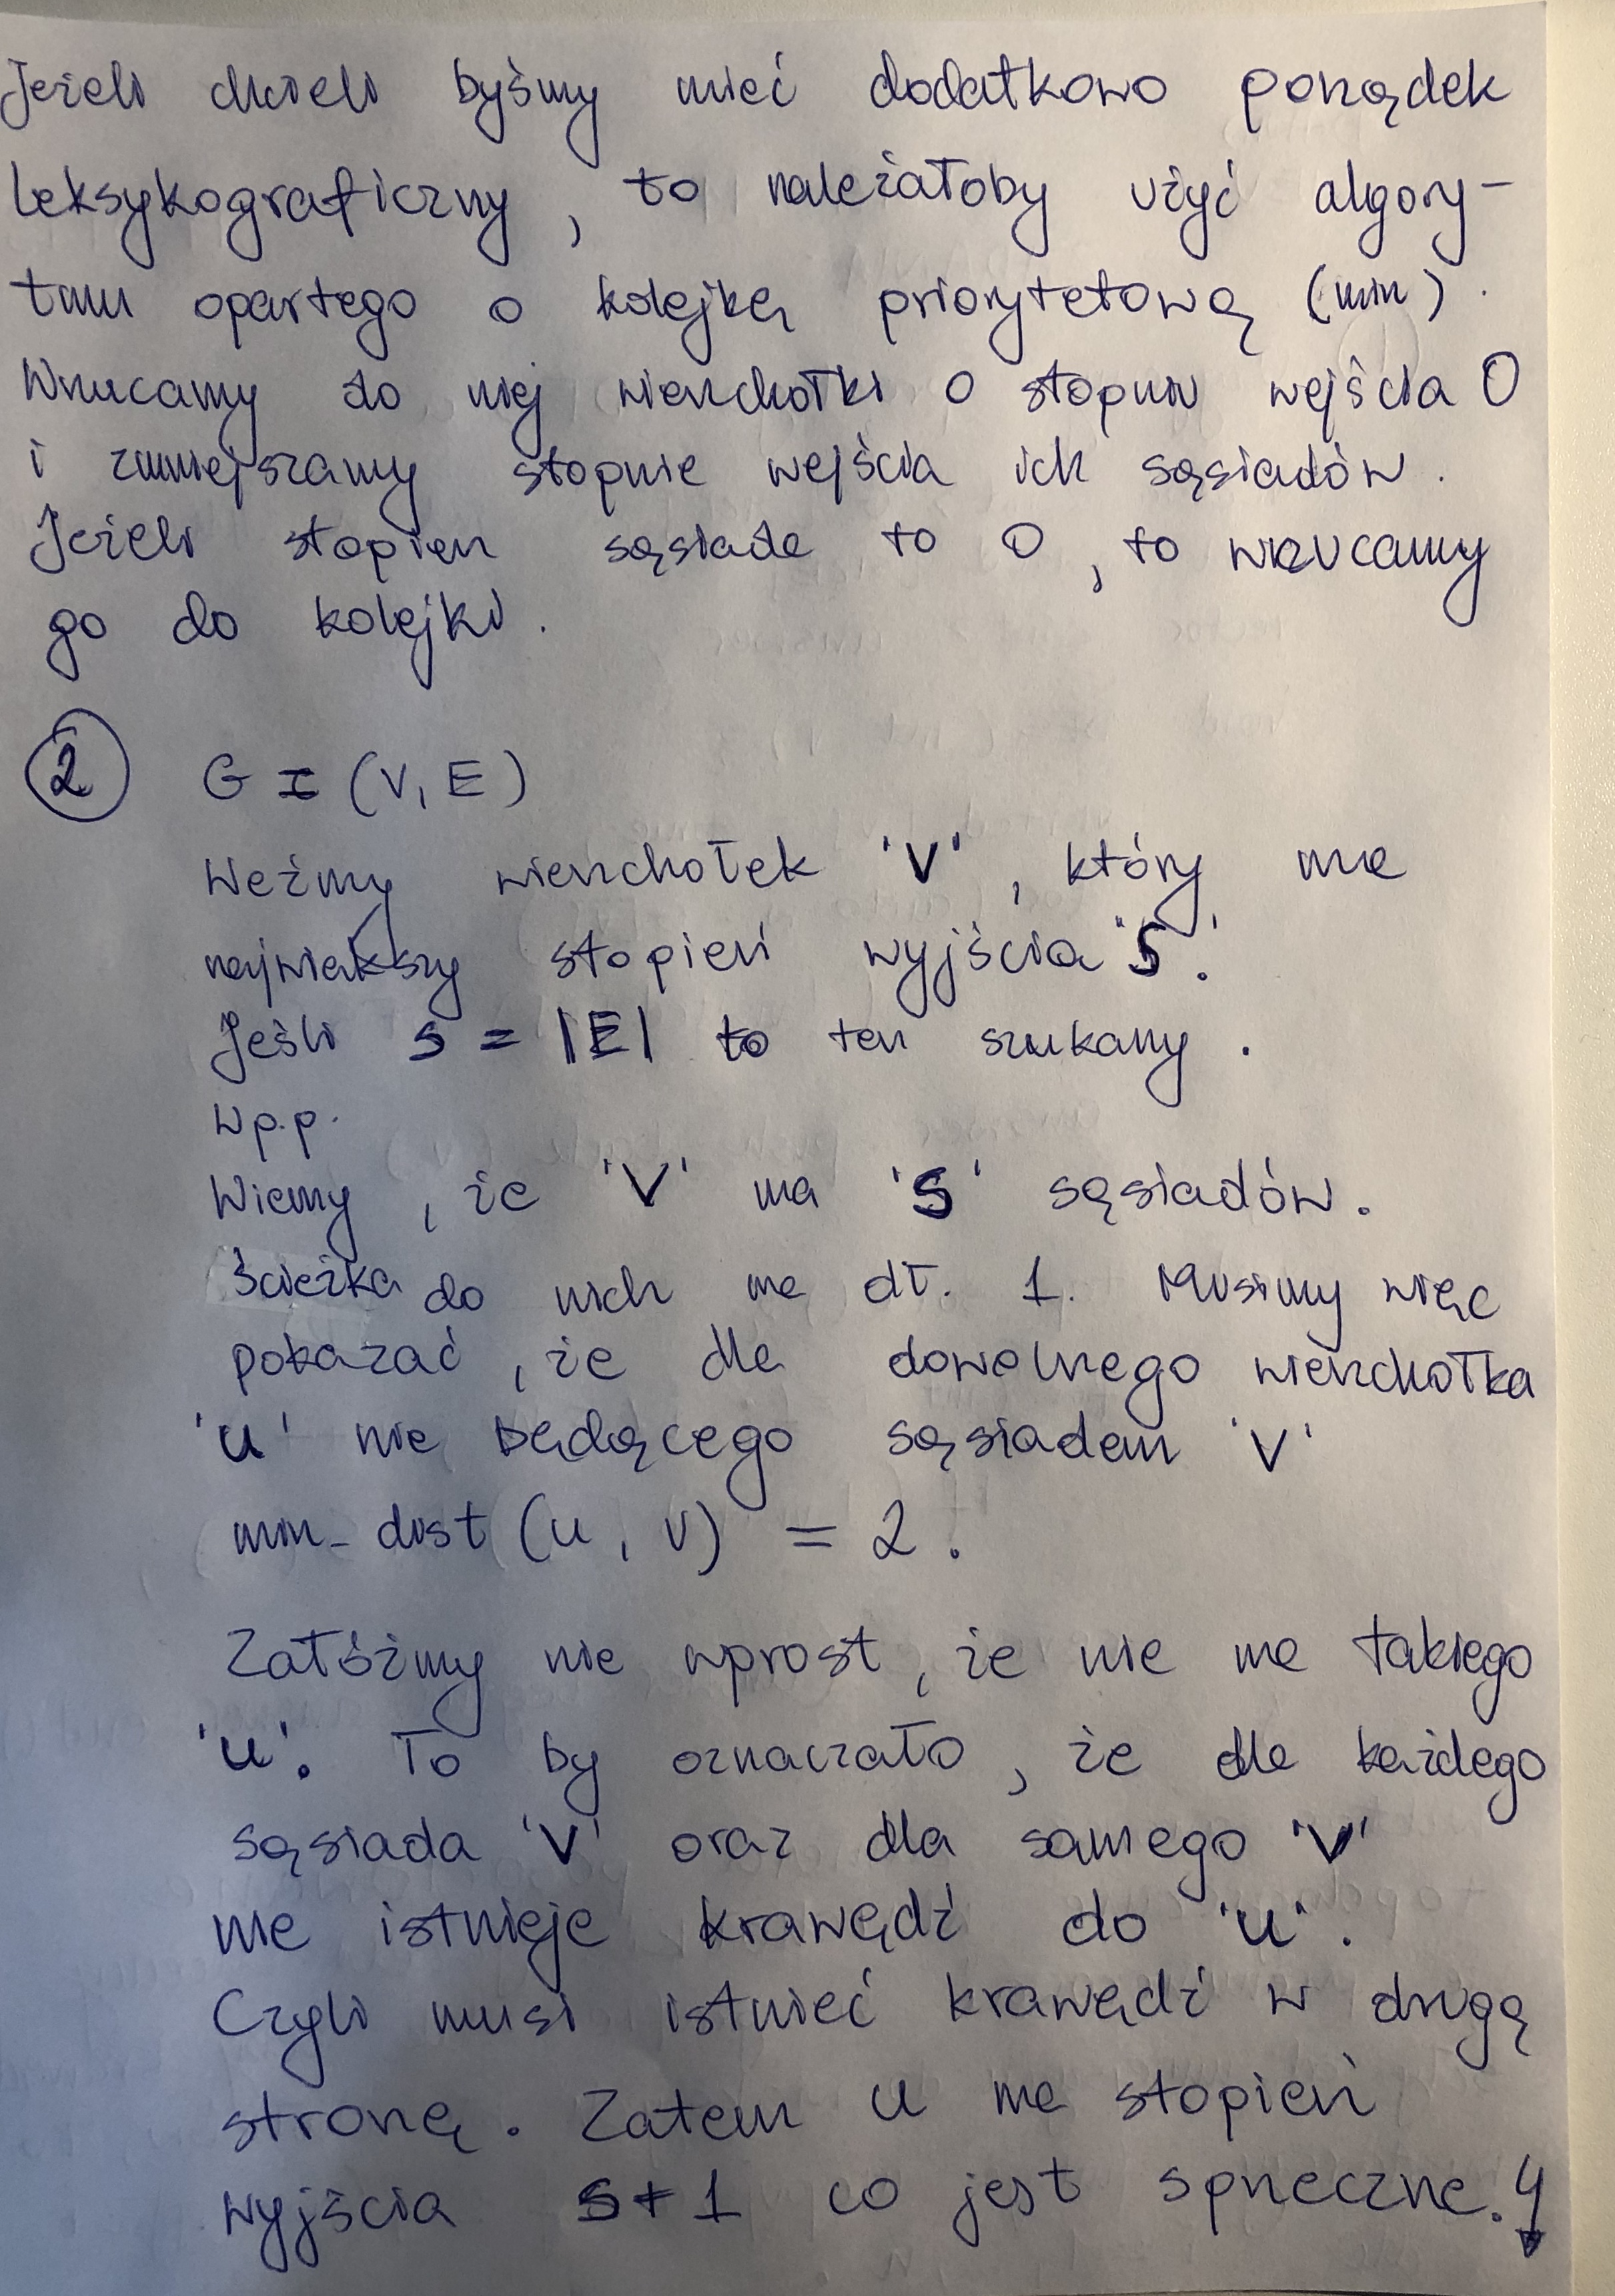 Jeżeli chcieli byśmy mieć dodatkowo porządek
leksykograficzny, to należałoby użyć algory-
tmu opartego o kolejkę priorytetową (min).
Wrzucamy do niej wierzchołki o stopniu wejścia 0
i zmniejszamy stopnie wejścia ich sąsiadów.
Jeżeli stopien sąsiada to 0, to wrzucamy
go do kolejki.
2 G = (V, E)
Weźmy wierzchołek 'V', który ma
największy stopień wyjścia 'S'.
Jeśli s = |E| to ten szukany.
Wp.p.
Wiemy, że 'V' ma 'S' sąsiadów.
Ścieżka do nich ma dł. 1. Musimy więc
pokazać, że dla dowolnego wierzchołka
'u' nie będącego sąsiadem 'V'
min_dist (u, v) = 2.
Załóżmy nie wprost, że nie ma takiego
'u'. To by oznaczało, że dla każdego
sąsiada 'V' oraz dla samego 'V'
nie istnieje krawędź do 'u'.
Czyli musi istnieć krawędź w drugą
stronę. Zatem u ma stopień
wyjścia S+1 co jest sprzeczne.